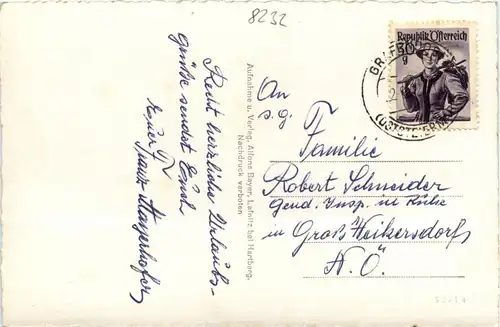 8232
Recht herzliche Urlaubs-
grüße sendet Euch
Euer
Franz Mayerhofer
Aufnahme u. Verlag: Alfons Bayer, Lafnitz bei Hartberg.
Nachdruck verboten
Republik Österreich
An
s.g.
Familie
Robert Schneider
Gend. Insp. in Ruhe
in Groß Weikersdorf
N.Ö.